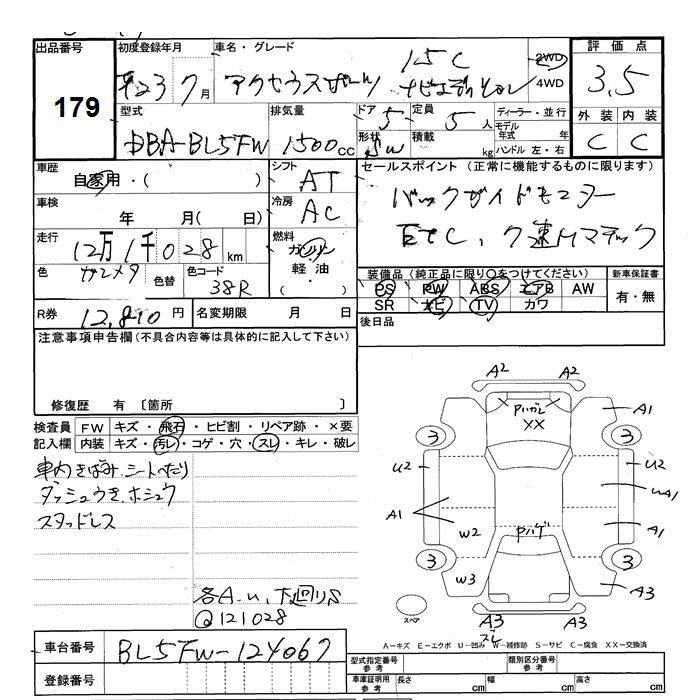 出品番号 初度登録年月 車名・グレード 15C 2WD 4WD 評価点
179 平23 7月 アクセラスポーツ 3.5
型式 排気量 ドア 定員 ディーラー・並行 外装 内装
DBA-BL5FW 1500cc 5 5人 モデル年式 年 C C
形状 5W 積載 kg ハンドル 左・右
車歴 自家用・( ) シフト AT セールスポイント(正常に機能するものに限ります)
車検 年 月( 日) 冷房 AC バックガイドモニター
走行 12万1千028km 燃料 ガソリン 軽油・( ) ETC、7速Mマチック
色 ガンメタ 色替 色コード 38R 装備品(純正品に限り○をつけてください) 新車保証書
PS PW ABS エアB AW 有・無
SR ナビ TV カワ
R券 12,810円 名変期限 月 日 後日品
注意事項申告欄(不具合内容等は具体的に記入して下さい)
修復歴 有 〔箇所 〕
検査員記入欄 FW キズ・飛石・ヒビ割・リペア跡・×要
内装 キズ・汚レ・コゲ・穴・スレ・キレ・破レ
車内きばみ.シートへたり
ダッシュウキ.ホシュウ
スタッドレス
各A.U、下廻りS
Q121028
A2 A2
Pハガレ XX A1
3 3
U2 U2
UA1
A1 W2 Pハゲ A1
3 3
W3 A3
スペア A3 ズレ A3
A-キズ E-エクボ U-凹み W-補修跡 S-サビ C-腐食 XX-交換済
車台番号 BL5FW-124067
登録番号
型式指定番号 参考 類別区分番号 参考
車庫証明用 参考 長さ cm 幅 cm 高さ cm